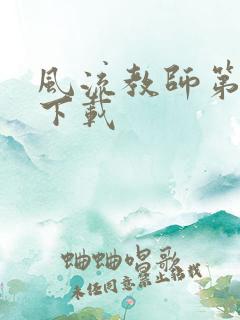 风流教师第
下载
蛐蛐唱歌
未经同意禁止转载